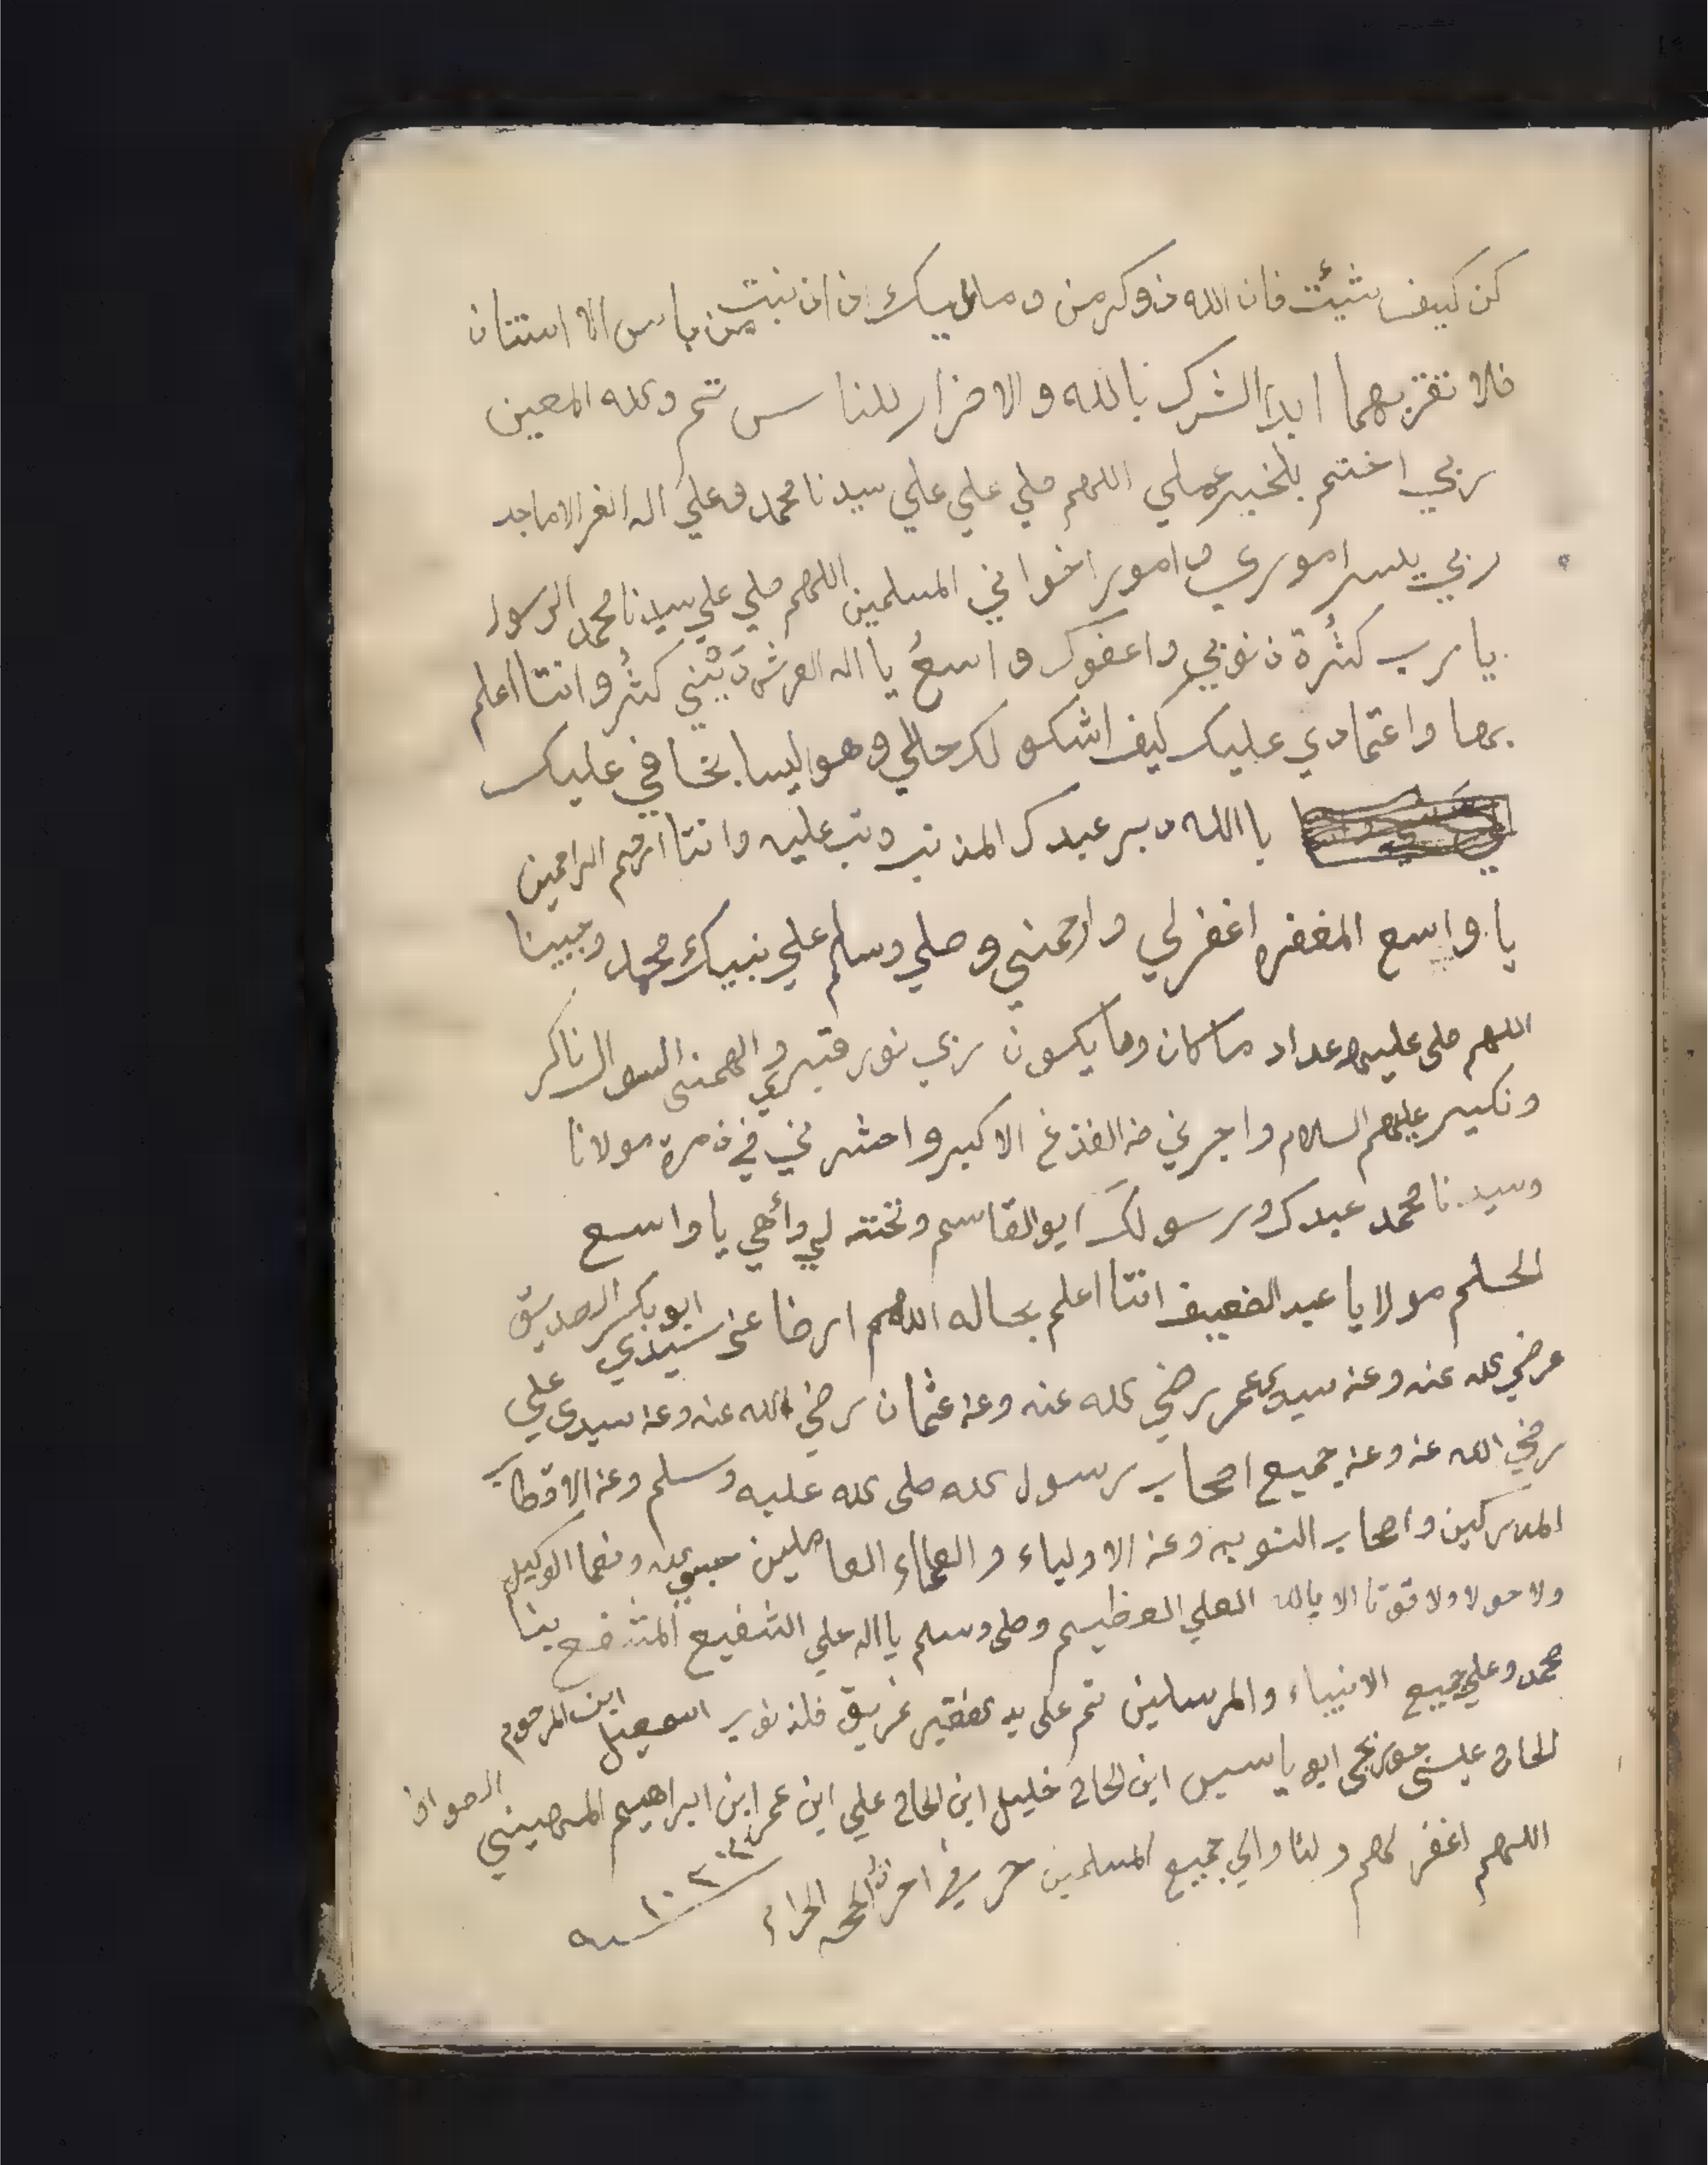 كن كيف شئت فان الله ذوكرمن وما عليك ان اذنبت من باس الا اثنتان
فلا تقربهما ابدا الشرك بالله والاضرار للناس تم والله المعين
ربي اختم بلخير عملي اللهم صلي علي علي سيدنا محمد وعلي اله الغر الاماجد
ربي يسر اموري و امور اخواني المسلمين اللهم صلي علي سيدنا محمد الرسول
يا رب كثرة ذنوبي واعفوك واسع يا اله العرش ذنبي كثر وانتا اعلم
بها واعتمادي عليك كيف اشكو لك حالي وهو ليسا بخافي عليك
يا الله دبر عبدك المذنب وتب عليه وانتا ارحم الراحمين
يا واسع المغفره اغفر لي وارحمني وصلي وسلم علي نبيك محمد ونبينا
اللهم صلي عليه عداد ما كان وما يكون ربي نور قبري والهمني السوال ناكر
ونكير عليهم السلام واجرني من الفذع الاكبر واحشرني في ذمرة مولانا
وسيدنا محمد عبدك ورسولك ابو القاسم يا واسع
الحلم مولايا عبد الضعيف انتا اعلم بحاله اللهم ارضا عن سيدي ابو بكر الصديق
رضي الله عنه وعن سيدي عمر رضي الله عنه وعن عثمان رضي الله عنه وعن سيدي علي
رضي الله عنه وعن جميع اصحاب رسول الله صلى الله عليه وسلم وعن الاقطاب
المدركين واصحاب النوبه وعن الاولياء والعلماء العاملين حسبي الله ونعما الوكيل
ولا حولا ولا قوتا الا بالله العلي العظيم وصلى وسلم يا اله علي الشفيع المشفع بينا
محمد وعلي جميع الانبياء والمرسلين تم على يد الفقير غريق اسمعيل ابن المرحوم
الحاج عيسى ابو ياسين ابن الحاج خليل ابن الحاج علي ابن عمر ابن ابراهيم
اللهم اغفر لهم ولنا والي جميع المسلمين حرر في اخر ذا الحجه الحرام
سنه